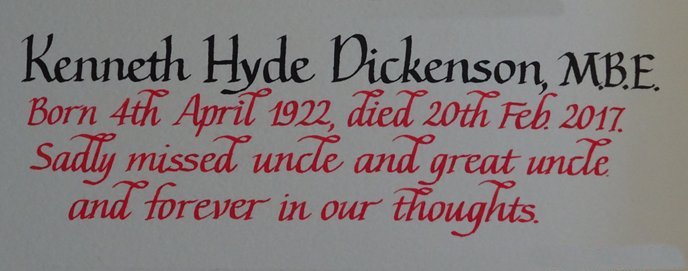 Kenneth Hyde Dickenson, M.B.E.
Born 4th April 1922, died 20th Feb. 2017.
Sadly missed uncle and great uncle
and forever in our thoughts.